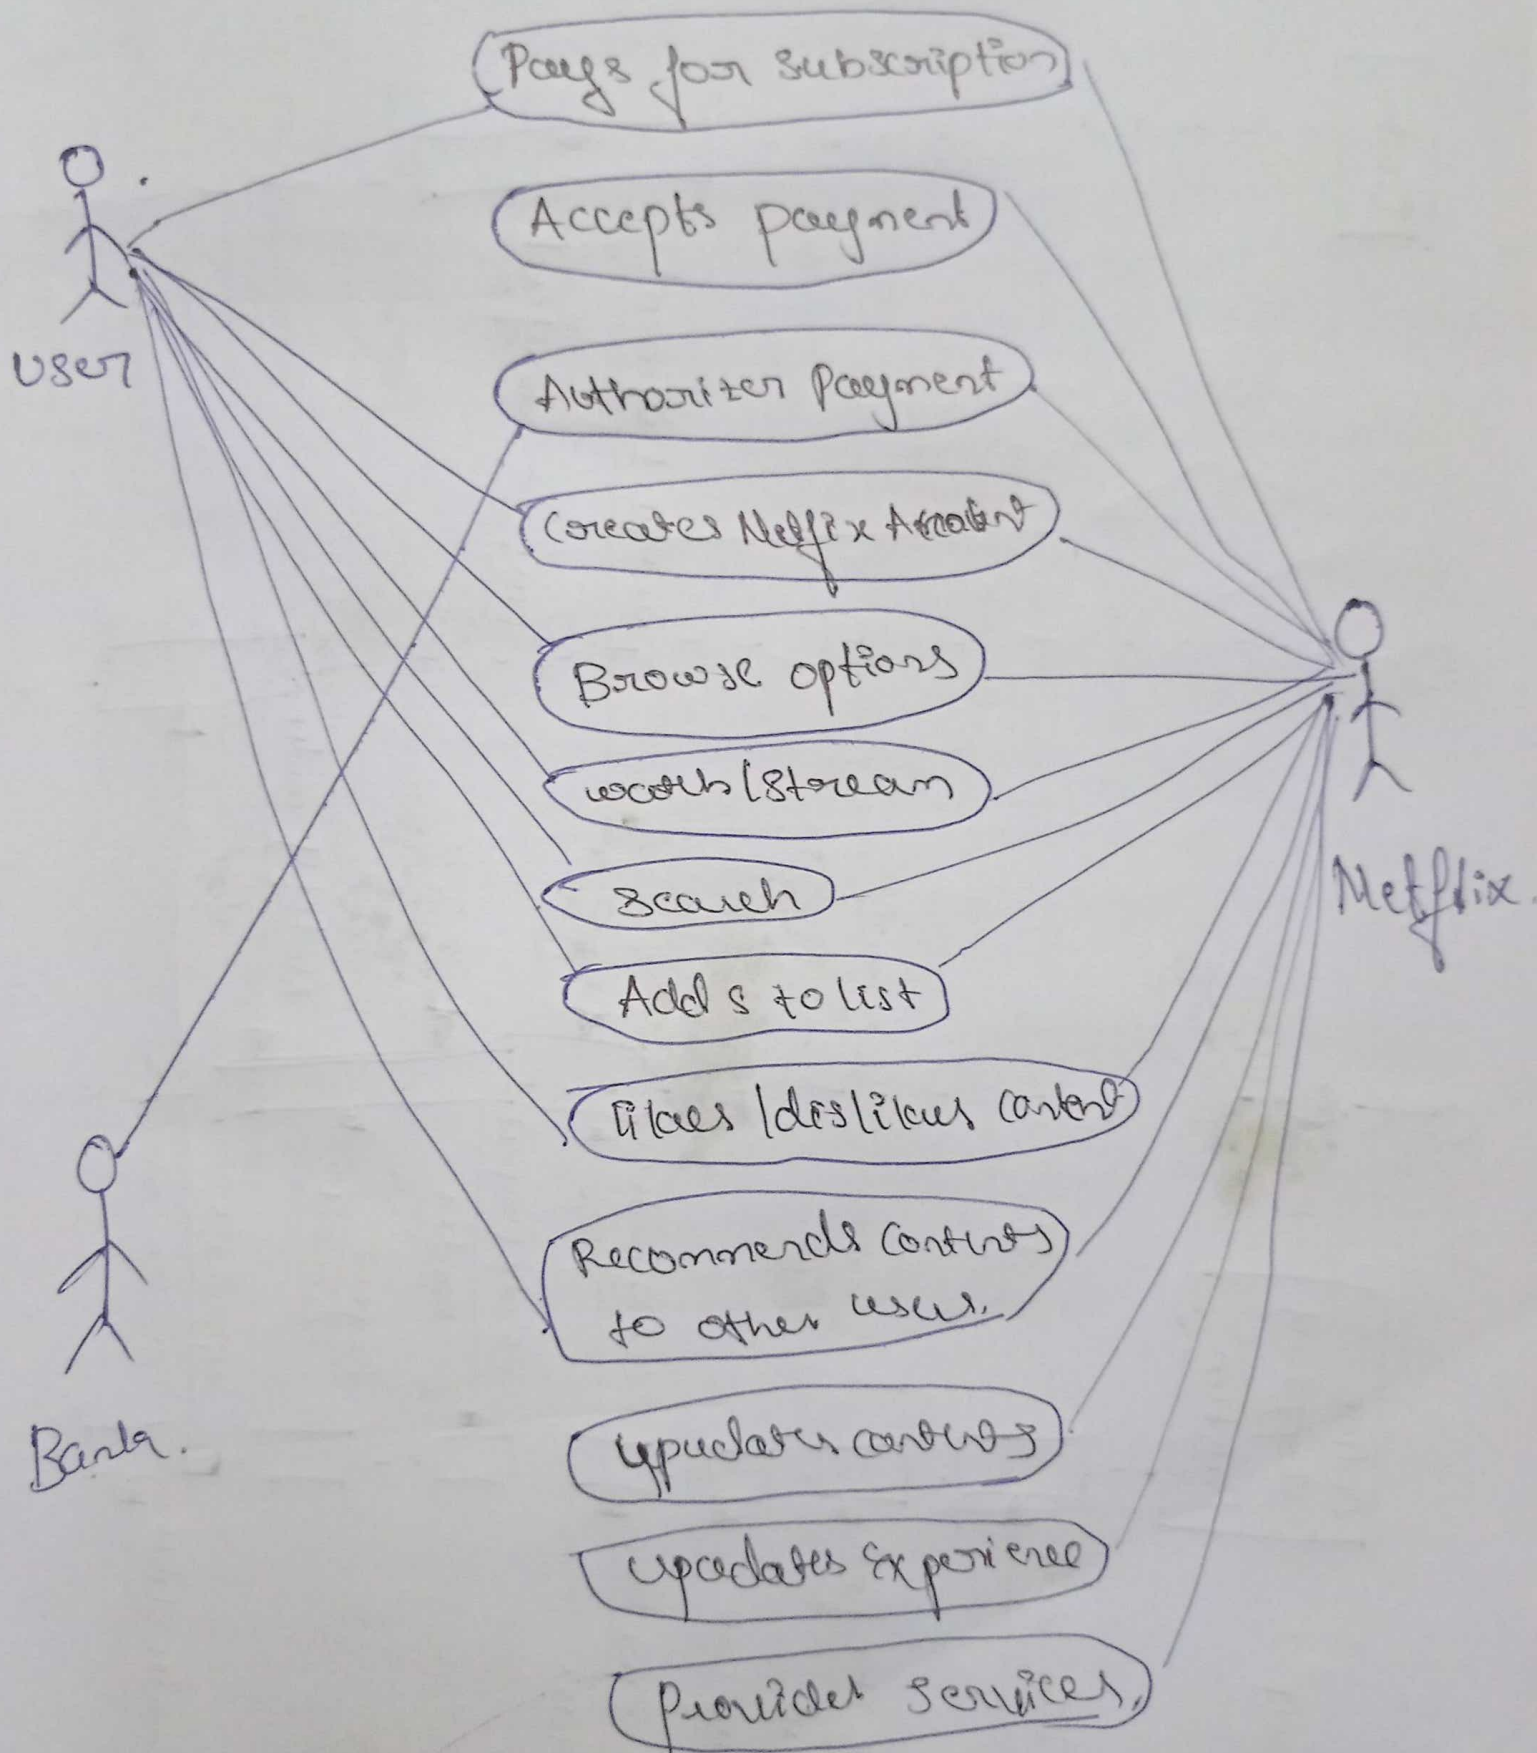 Pays for subscription
Accepts payment
User
Authorizer Payment
Creates Netfix Account
Browse options
watch/Stream
Search
Netflix.
Adds to list
likes/dislikes content
Recommends contents
to other users.
Bank.
updates contents
updates Experience
Provides Services.